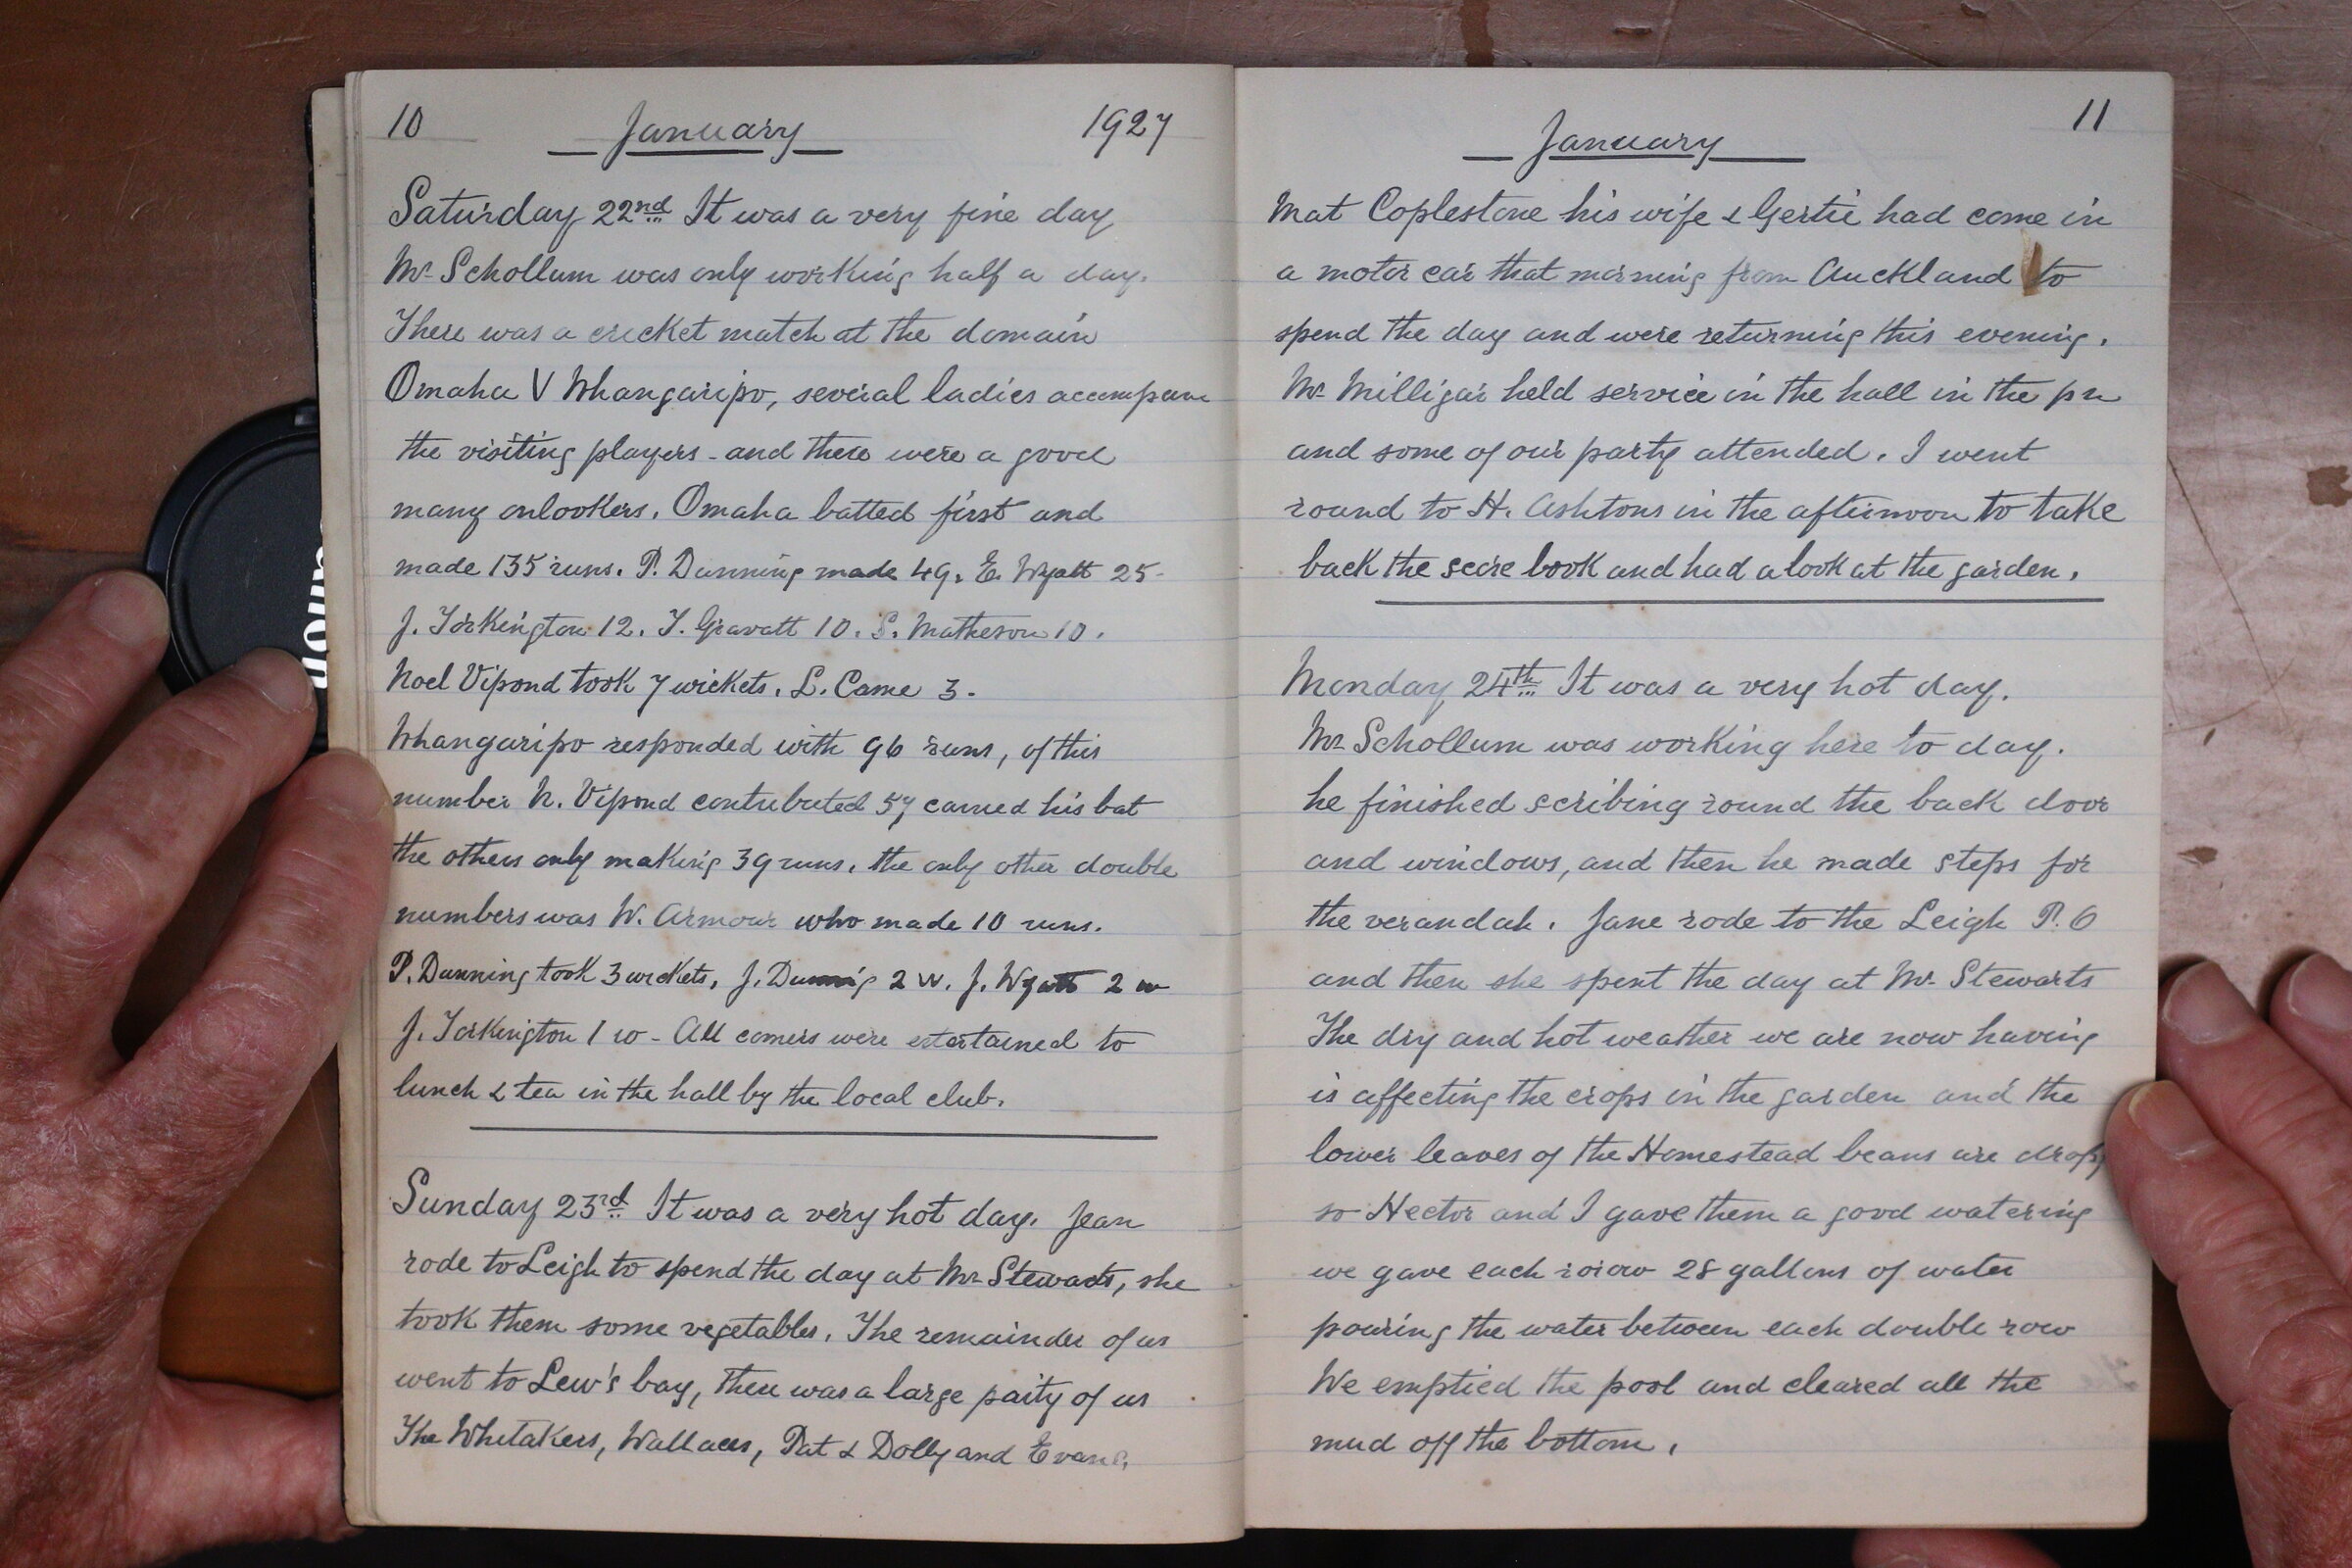 10 January 1927
Saturday 22nd It was a very fine day
Mr Schollum was only working half a day.
There was a cricket match at the domain
Omaha V Whangaripo, several ladies accompan
the visiting players - and there were a good
many onlookers. Omaha batted first and
made 135 runs. P. Dunning made 49. E. Wyatt 25-
J. Torkington 12. T. Gravatt 10. S. Matheson 10.
Noel Vipond took 7 wickets. L. Came 3.
Whangaripo responded with 96 runs, of this
number N. Vipond contributed 57 carried his bat
the others only making 39 runs. the only other double
numbers was W. Armour who made 10 runs.
P. Dunning took 3 wickets, J. Dunnig 2 w. J. Wyatt 2 w
J. Torkington 1 w - All comers were entertained to
lunch & tea in the hall by the local club.
Sunday 23rd It was a very hot day. Jean
rode to Leigh to spend the day at Mr Stewarts, she
took them some vegetables. The remainder of us
went to Lew's bay, there was a large party of us
The Whitakers, Wallaces, Pat & Dolly and Evans.
January 11
Mat Coplestone his wife & Gertie had come in
a motor car that morning from Auckland to
spend the day and were returning this evening.
Mr Milligar held service in the hall in the pm
and some of our party attended. I went
round to H. Ashtons in the afternoon to take
back the score book and had a look at the garden.
Monday 24th It was a very hot day.
Mr Schollum was working here to day.
he finished scribing round the back door
and windows, and then he made steps for
the verandah. Jane rode to the Leigh P.O
and then she spent the day at Mr Stewarts
The dry and hot weather we are now having
is affecting the crops in the garden and the
lower leaves of the Homestead beans are drop
so Hector and I gave them a good watering
we gave each row 28 gallons of water
pouring the water between each double row
We emptied the pool and cleared all the
mud off the bottom.